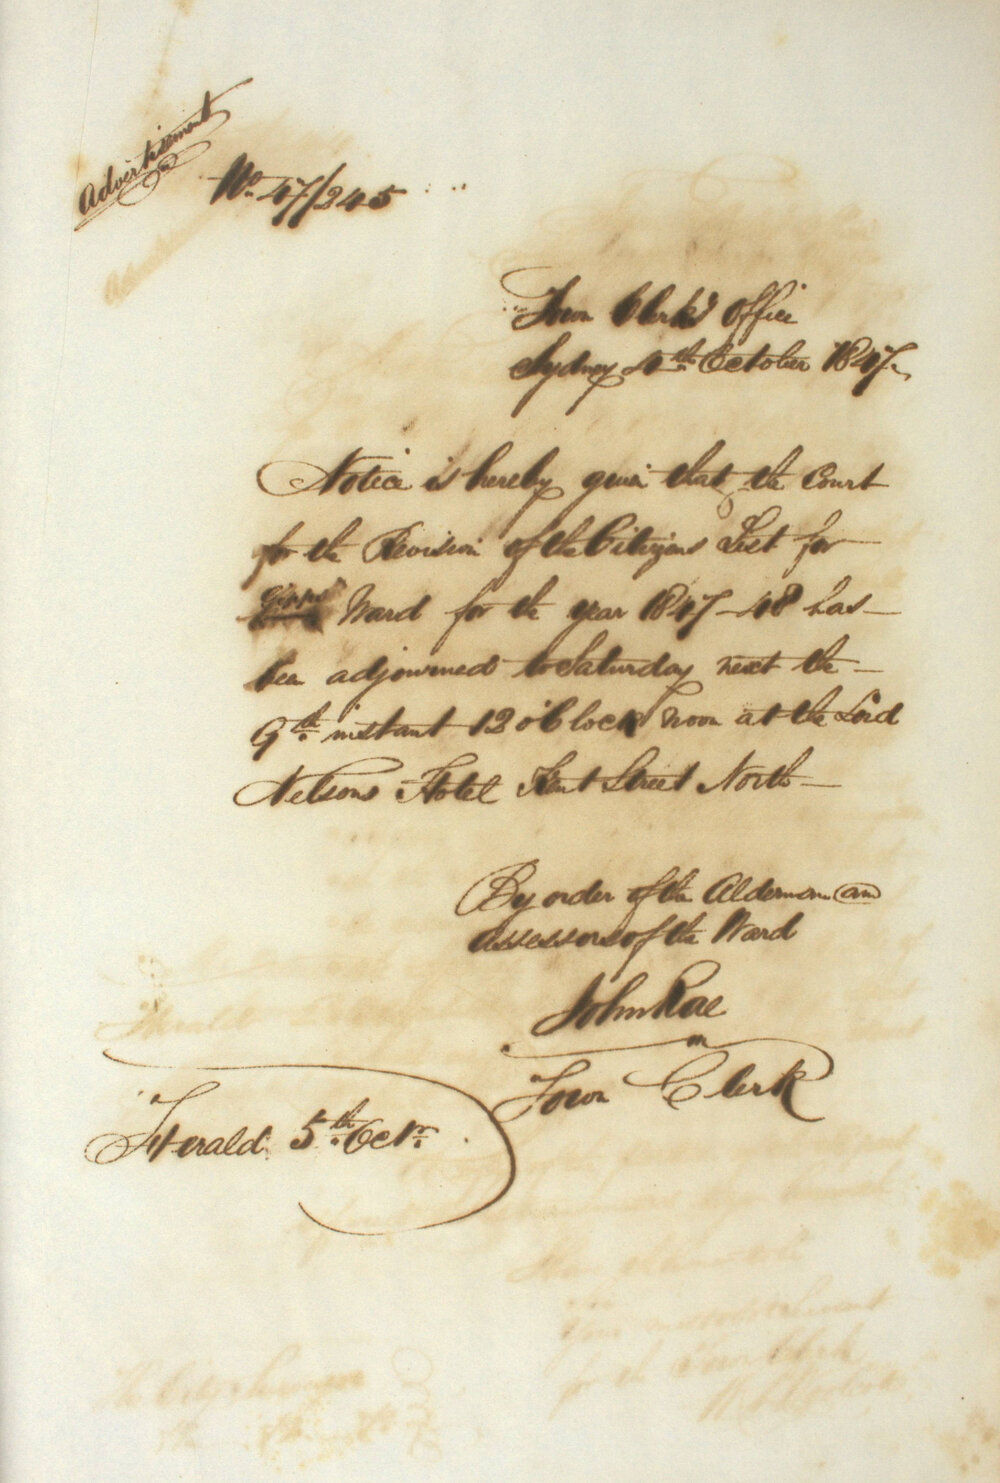 Advertisement
No. 47/245
Town Clerk's Office
Sydney 4th October 1847
Notice is hereby given that the Court
for the Revision of the Citizens List for
Gipps Ward for the year 1847-48 has
been adjourned to Saturday next the
9th instant 12 o'Clock Noon at the Lord
Nelsons Hotel Kent Street North
By order of the Alderman and
Assessors of the Ward
John Rae
Town Clerk
Herald 5th Octr.